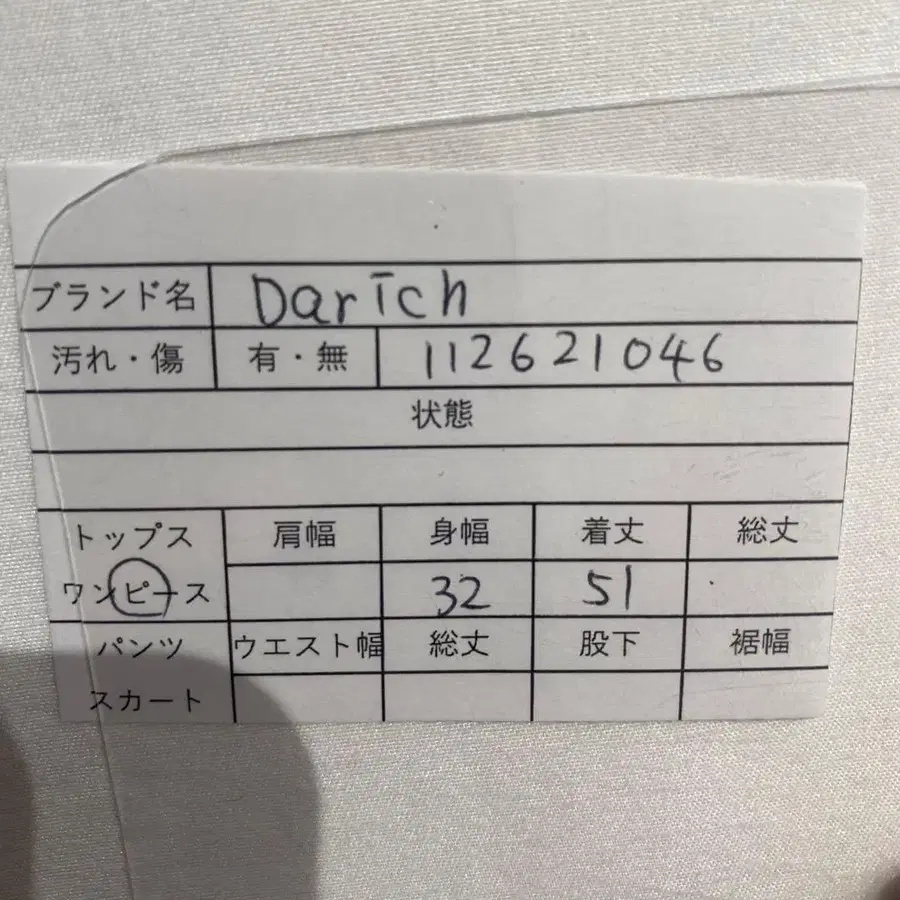 ブランド名 Darich
汚れ・傷 有・無 112621046
状態
トップス 肩幅 身幅 着丈 総丈
ワンピース 32 51
パンツ ウエスト幅 総丈 股下 裾幅
スカート